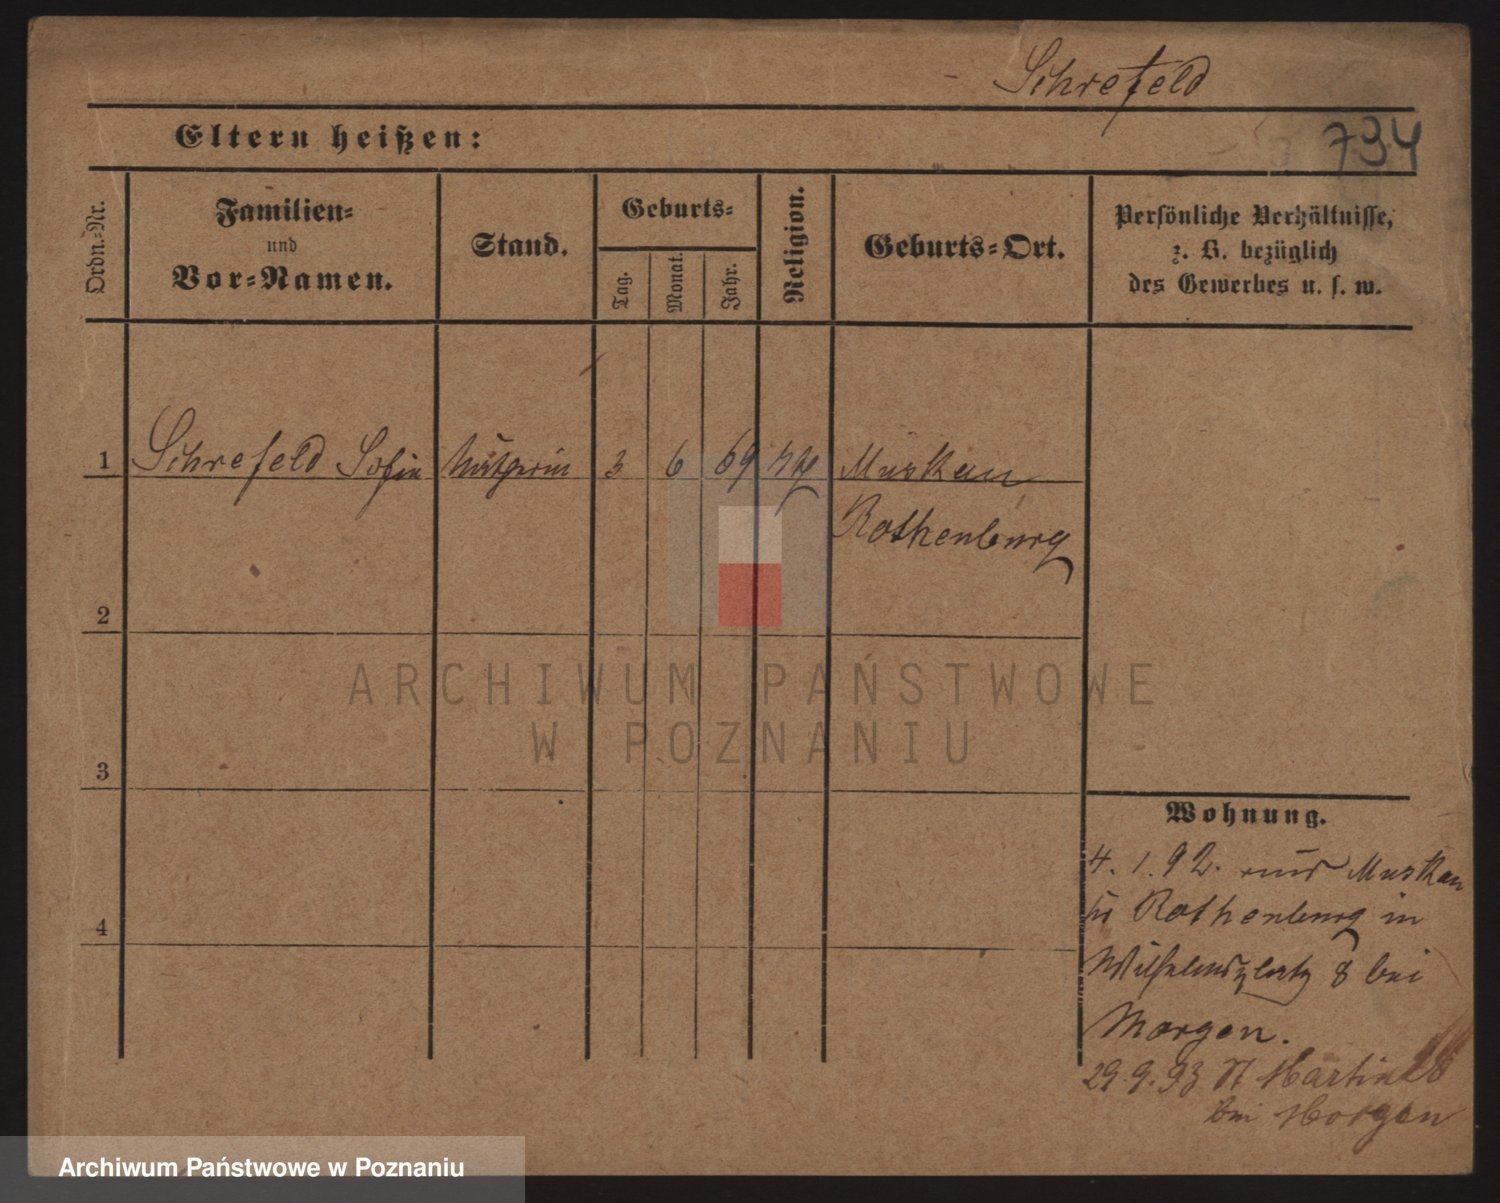 Schrefeld
Eltern heißen:
734
Ordn.=Nr.
Familien=
und
Vor=Namen.
Stand.
Geburts=
Tag.
Monat.
Jahr.
Religion.
Geburts=Ort.
Persönliche Verhältnisse,
z. B. bezüglich
des Gewerbes u. s. w.
1 Schrefeld Sofie 3 6 69 Muskau
Rothenburg
2
3
4
Wohnung.
4. 1. 92. aus Muskau
Rothenburg in
Wilhelmsplatz 8 bei
Morgen.
29. 9. 93 St Martin
bei Morgen
ARCHIWUM PAŃSTWOWE
W POZNANIU
Archiwum Państwowe w Poznaniu